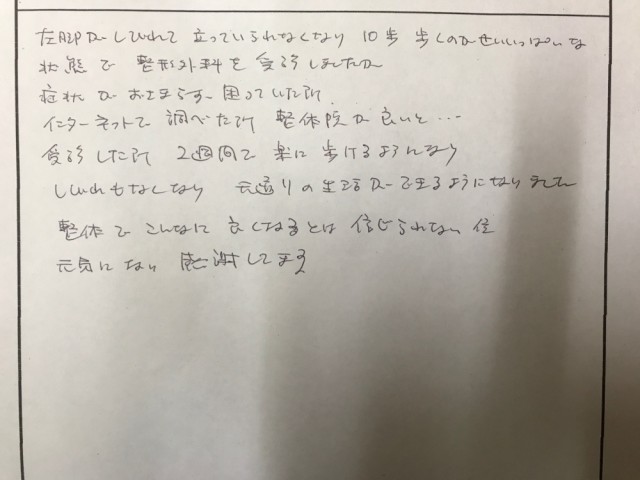 左脚がしびれて 立っていられなくなり 10歩 歩くのがせいいっぱいな
状態で 整形外科を 受診しましたが
症状が おさまらず 困っていた所
インターネットで 調べた所 整体院が 良いと…
受診した所 2週間で 楽に 歩けるようになり
しびれもなくなり 元通りの 生活ができるようになりました
整体で こんなに 良くなるとは 信じられない 位
元気になり 感謝してます